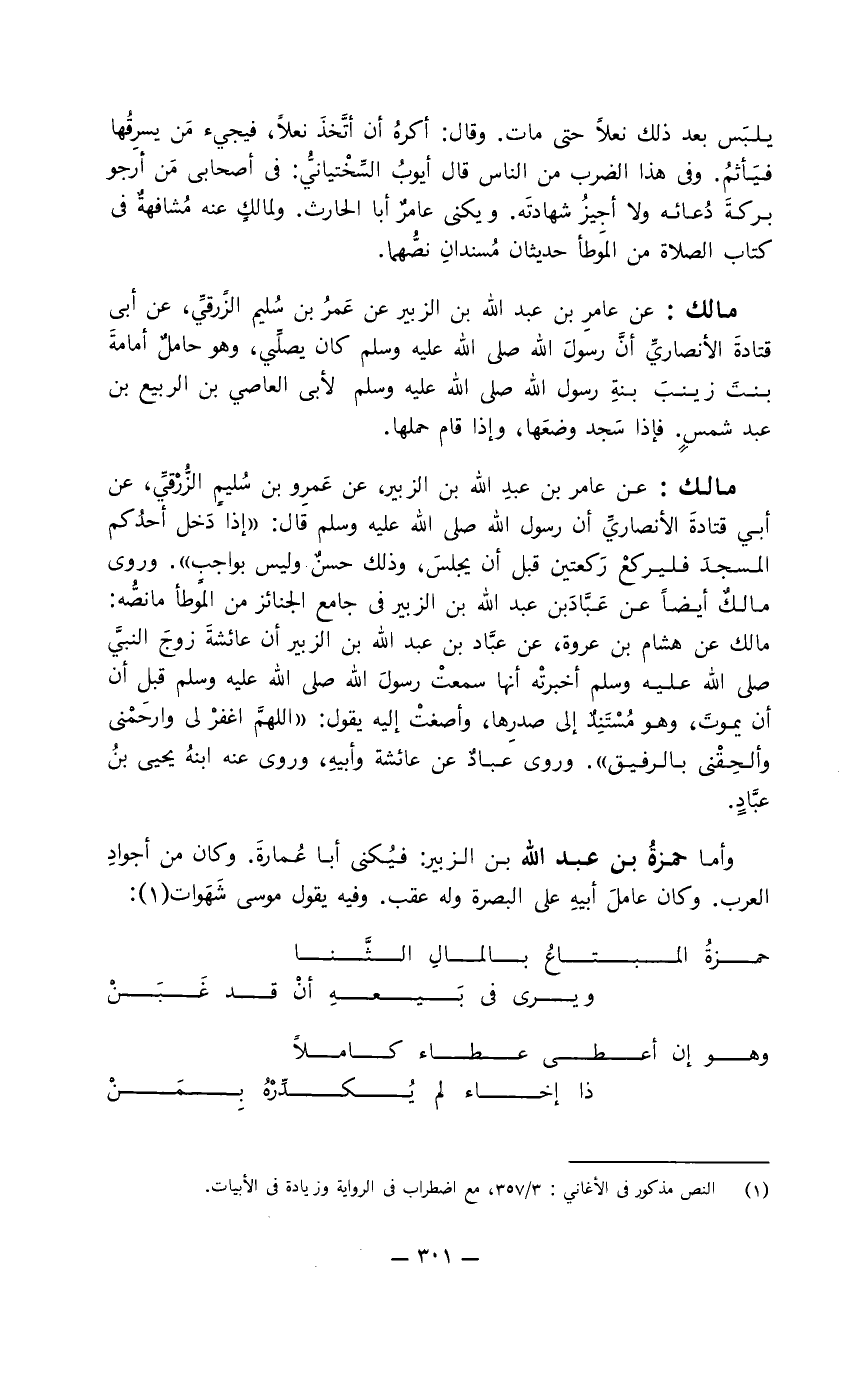 يلبَس بعد ذلك نعلاً حتى مات. وقال: أكرهُ أن أتَّخذَ نعلاً، فيجيء مَن يسرِقُها
فيَأثمُ. وفى هذا الضرب من الناس قال أيوبُ السِّخْتيانيُّ: فى أصحابى مَن أرجو
بركةَ دُعائه ولا أجيزُ شهادتَه. ويكنى عامرٌ أبا الحارث. ولمالكٍ عنه مُشافهةٌ فى
كتاب الصلاة من الموطأ حديثان مُسندانِ نصُّهما.
مالك : عن عامرِ بن عبد الله بن الزبير عن عَمرُ بن سُليم الزَّرقيِّ، عن أبى
قتادةَ الأنصاريِّ أنَّ رسولَ الله صلى الله عليه وسلم كان يصلِّي، وهو حاملٌ أمامةَ
بنتَ زينبَ بنةِ رسول الله صلى الله عليه وسلم لأبى العاصي بن الربيع بن
عبد شمسٍ. فإذا سَجد وضعَها، وإذا قام حملها.
مالك : عن عامر بن عبدِ الله بن الزبير، عن عَمرِو بن سُليمٍ الزُّرْقيِّ، عن
أبي قتادةَ الأنصاريِّ أن رسول الله صلى الله عليه وسلم قال: «إذا دَخل أحدُكم
المسجدَ فليركعْ رَكعتين قبل أن يجلسَ، وذلك حسنٌ وليس بواجبٍ». وروى
مالكٌ أيضاً عن عَبَّادَبن عبد الله بن الزبير فى جامع الجنائز من الموطأ مانصُّه:
مالك عن هشام بن عروة، عن عبَّاد بن عبد الله بن الزبير أن عائشةَ زوجَ النبيَّ
صلى الله عليه وسلم أخبرتْه أنها سمعتْ رسولَ الله صلى الله عليه وسلم قبل أن
أن يموتَ، وهو مُسْتَنِدٌ إلى صدرِها، وأصغتْ إليه يقول: «اللهمَّ اغفرْ لى وارحَمْنى
وألحِقْنى بالرفيق». وروى عبادٌ عن عائشة وأبيهِ، وروى عنه ابنهُ يحيى بنُ
عبَّادٍ.
وأما حمزةُ بن عبد الله بن الزبير: فيُكنى أبا عُمارةَ. وكان من أجوادِ
العرب. وكان عاملَ أبيهِ على البصرة وله عقب. وفيه يقول موسى شَهَوات(١):
حمزةُ المبتاعُ بالمالِ الثَّنا
ويرى فى بَيعهِ أنْ قد غَبَنْ
وهو إن أعطى عطاء كاملاً
ذا إخاء لم يُكدِّرْهُ بِمَنْ
(١) النص مذكور فى الأغاني : ٣٥٧/٣، مع اضطراب فى الرواية وزيادة فى الأبيات.
— ٣٠١ —